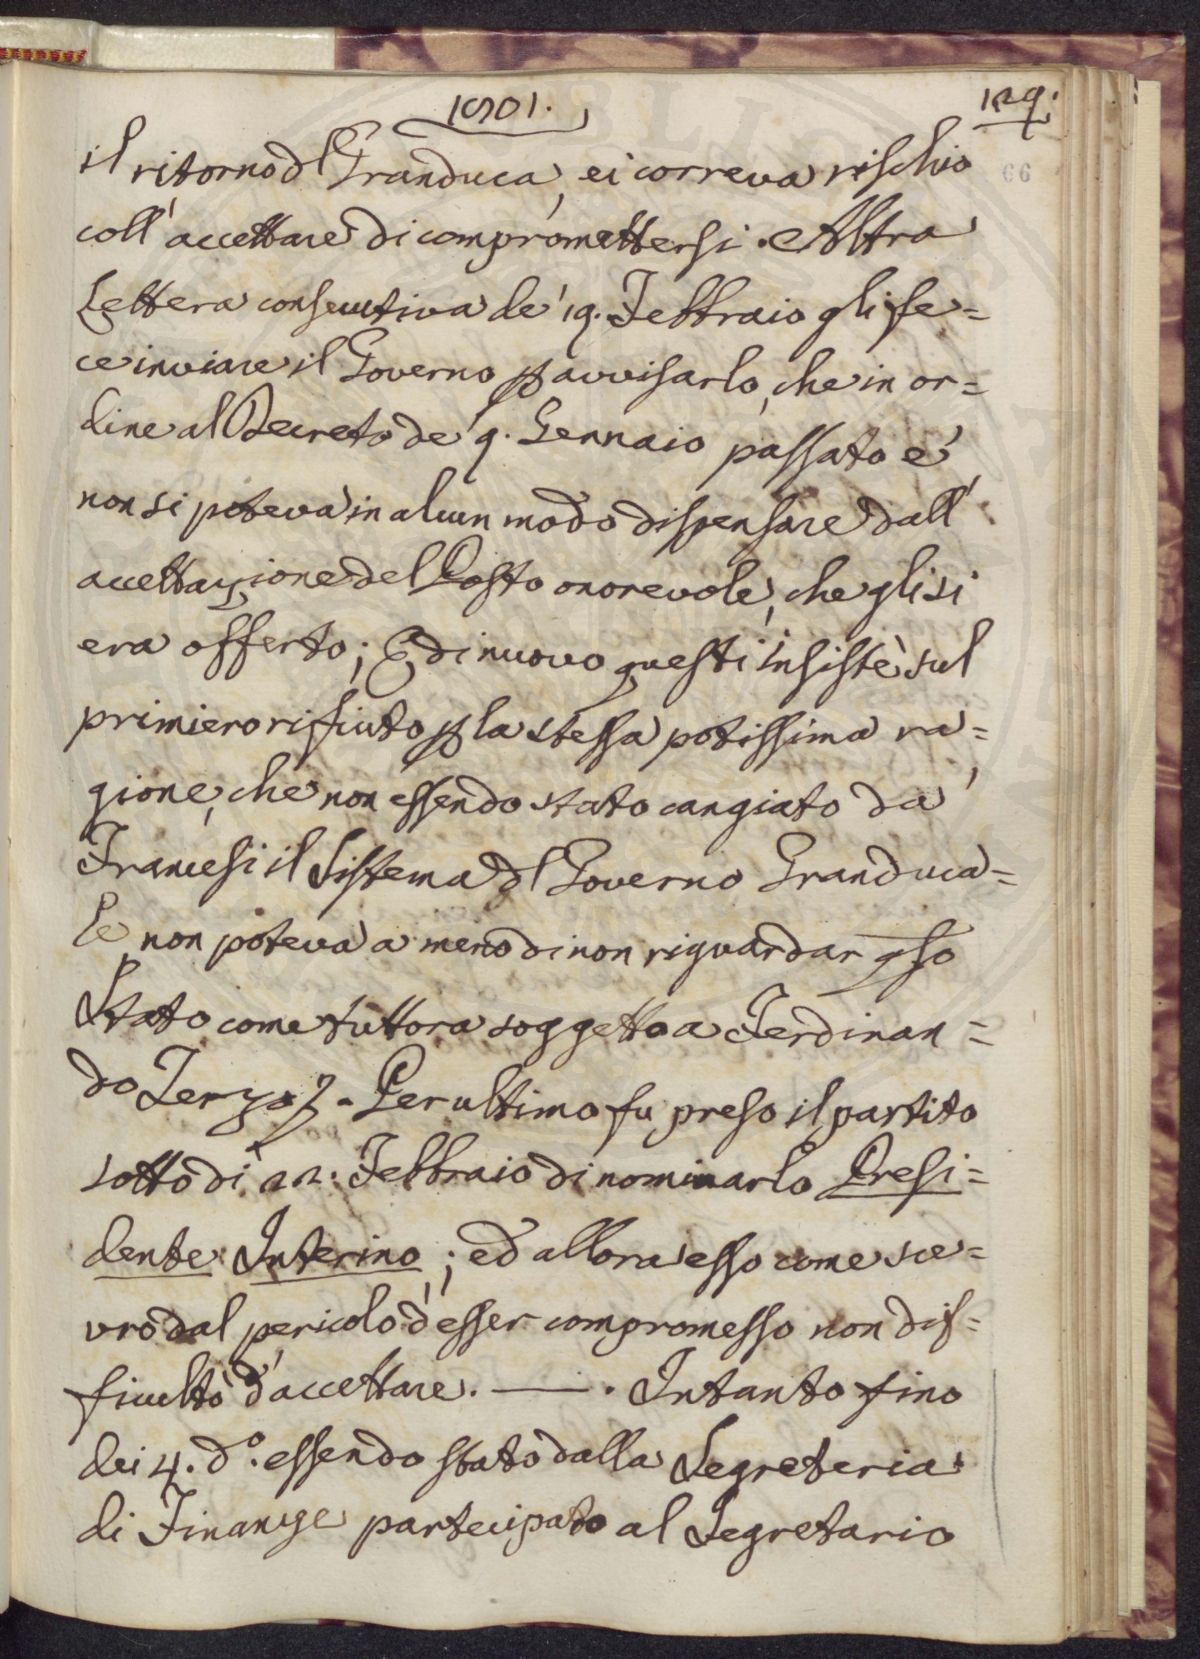 1801.
129.
66
il ritorno dl Granduca, ei correva rischio
coll'accettare di compromettersi. Altra
Lettera consecutiva de' 19. Febbraio gli fe=
ce inviare il Governo p avvisarlo, che in or=
dine al Decreto de' 9. Gennaio passato e'
non si poteva in alcun modo dispensare dall'
accettazione del Posto onorevole, che gli si
era offerto; E di nuovo questi insistè sul
primiero rifiuto p la stessa potissima ra=
gione, che non essendo stato cangiato da'
Francesi il Sistema dl Governo Granduca=
le, non poteva a meno di non riguardar qso
Stato come tuttora soggetto a Ferdinan=
do Terzo. Per ultimo fu preso il partito
sotto di 22. Febbraio di nominarlo Presi=
dente Interino; ed allora esso come sce=
vro dal pericolo d'esser compromesso non dif=
ficultò d'accettare. —. Intanto fino
dei 4. do. essendo stato dalla Segreteria
di Finanze partecipato al Segretario